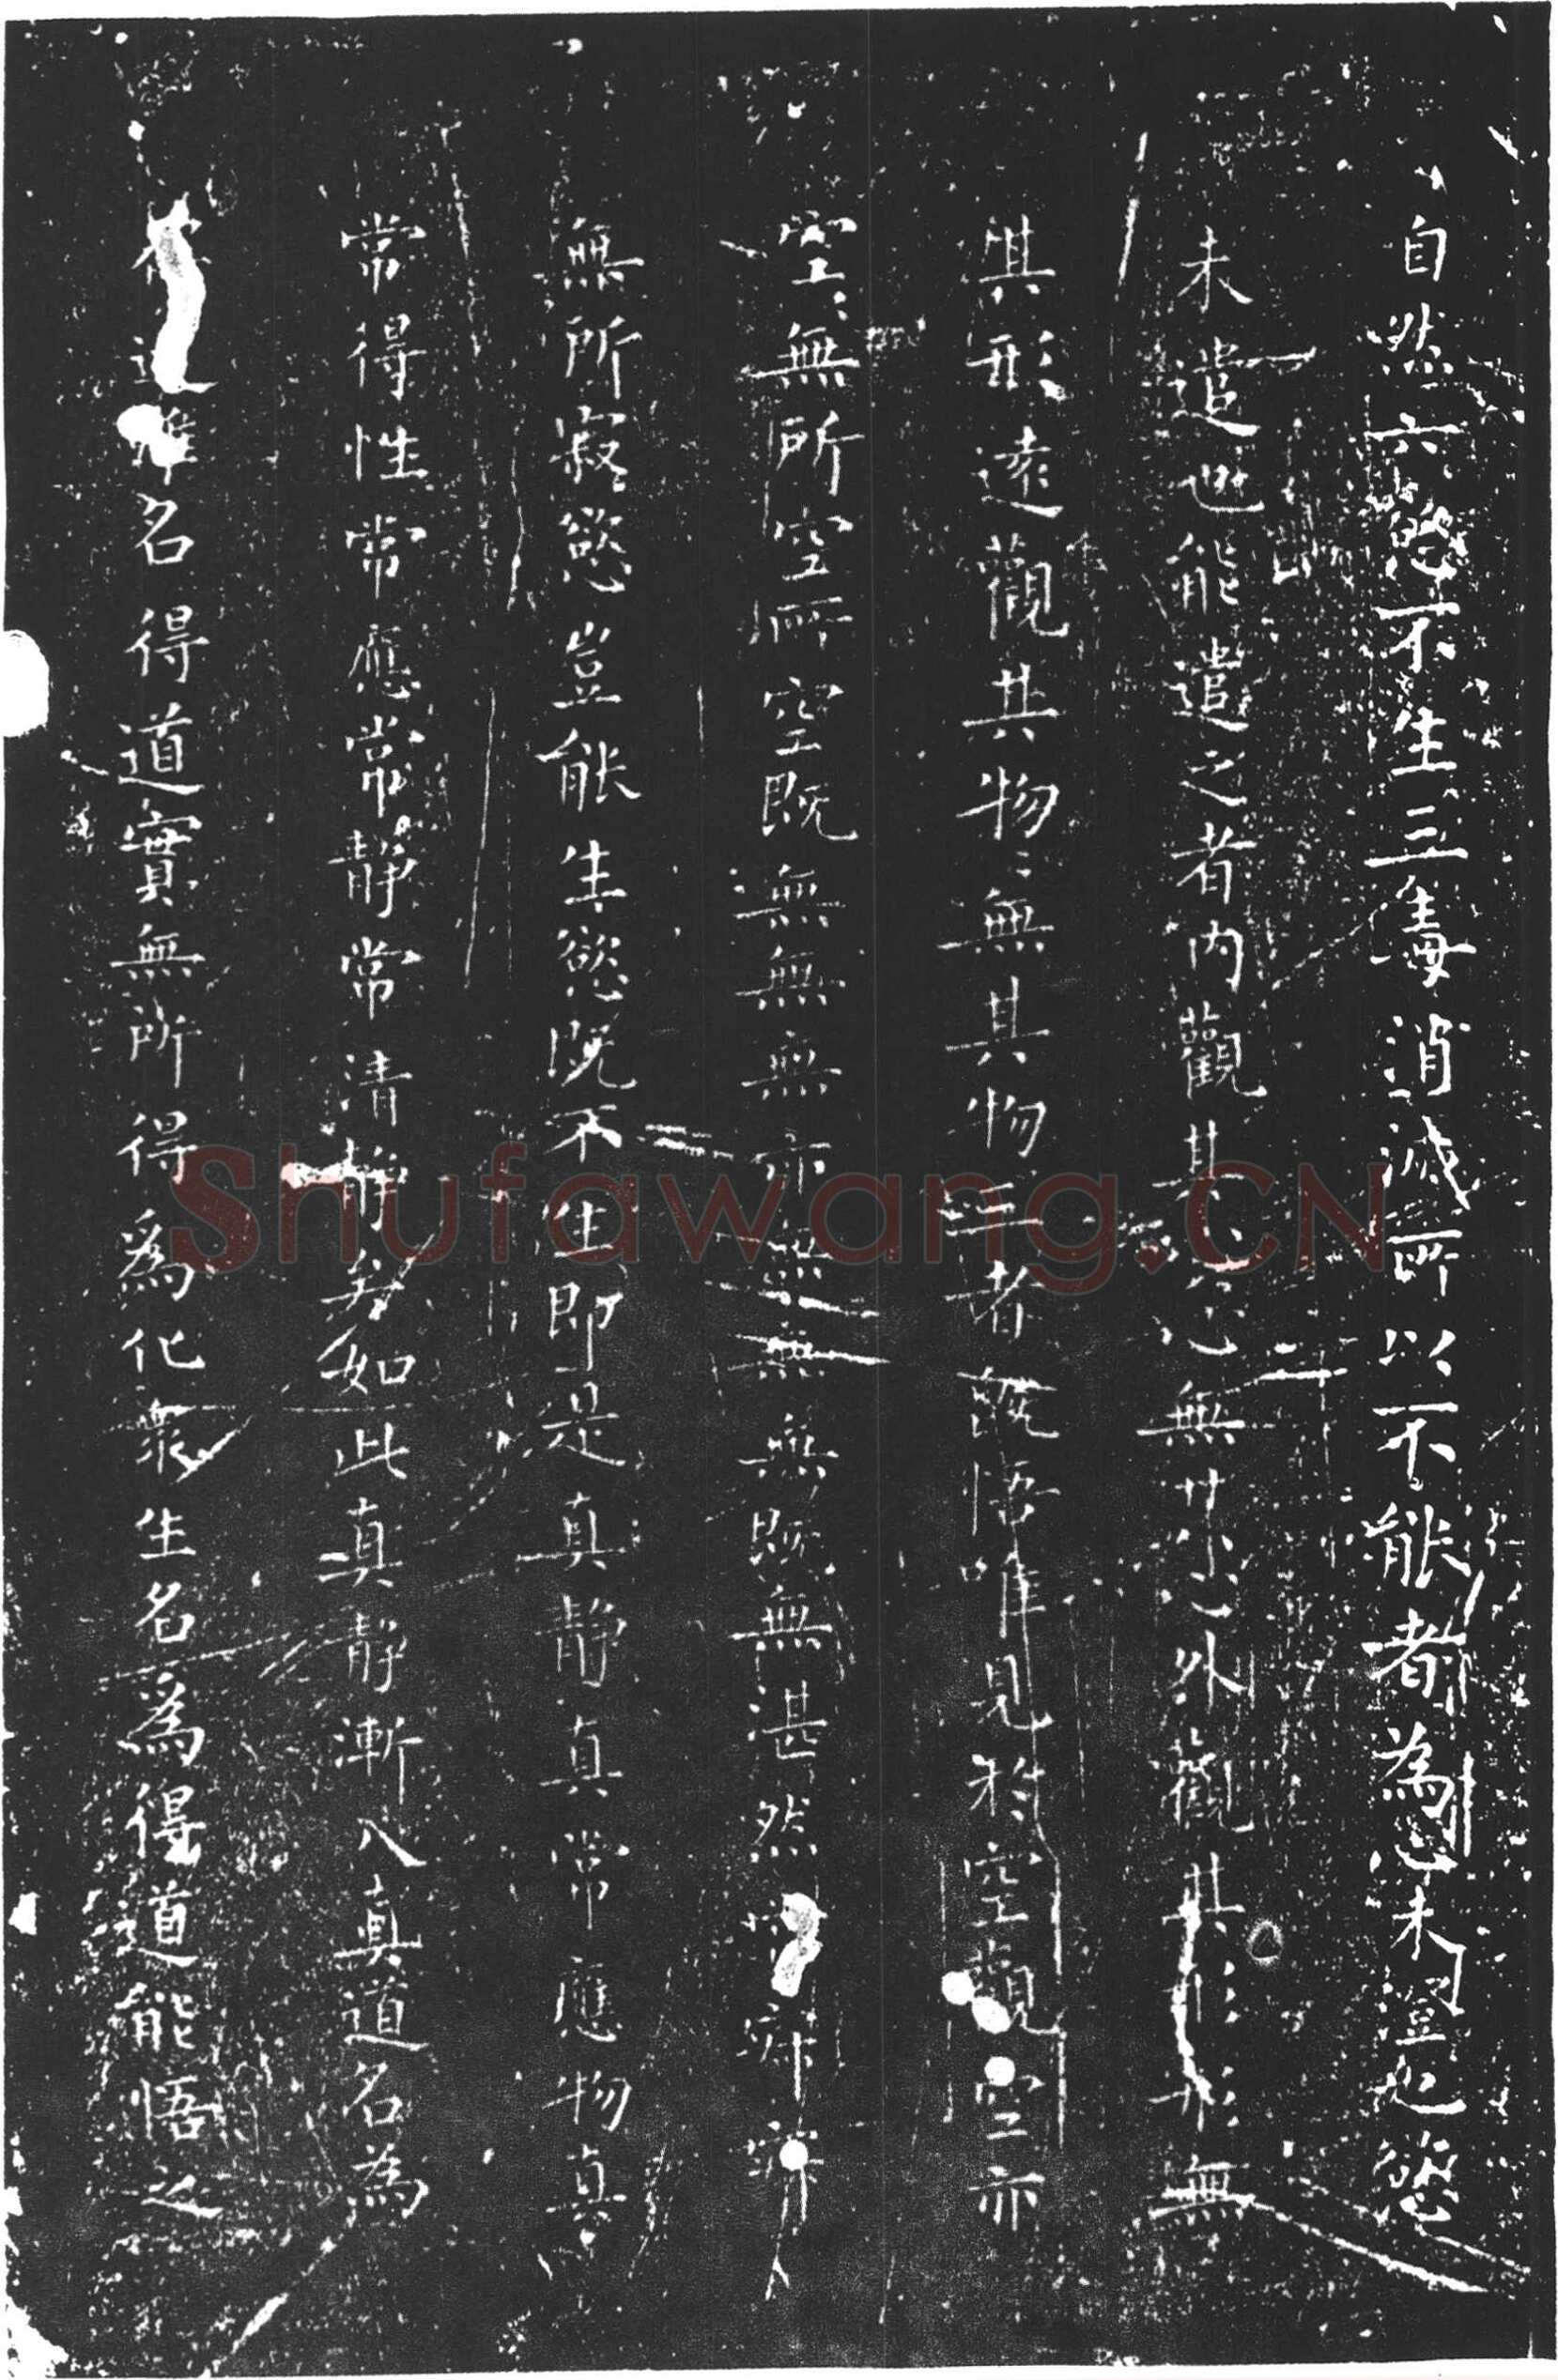 自然六慾不生三毒消滅所以不能者為心未澄也慾
未遣也能遣之者内觀其心心無其心外觀其形形無
其形遠觀其物〻無其物三者既悟唯見於空觀空亦
空〻無所空所空既無無無亦無無無既無湛然常寂寂
無所寂慾豈能生慾既不生即是真静真常應物真
常得性常應常静常清静矣如此真静漸入真道名為
得道雖名得道實無所得為化衆生名為得道能悟之
Shufawang.CN